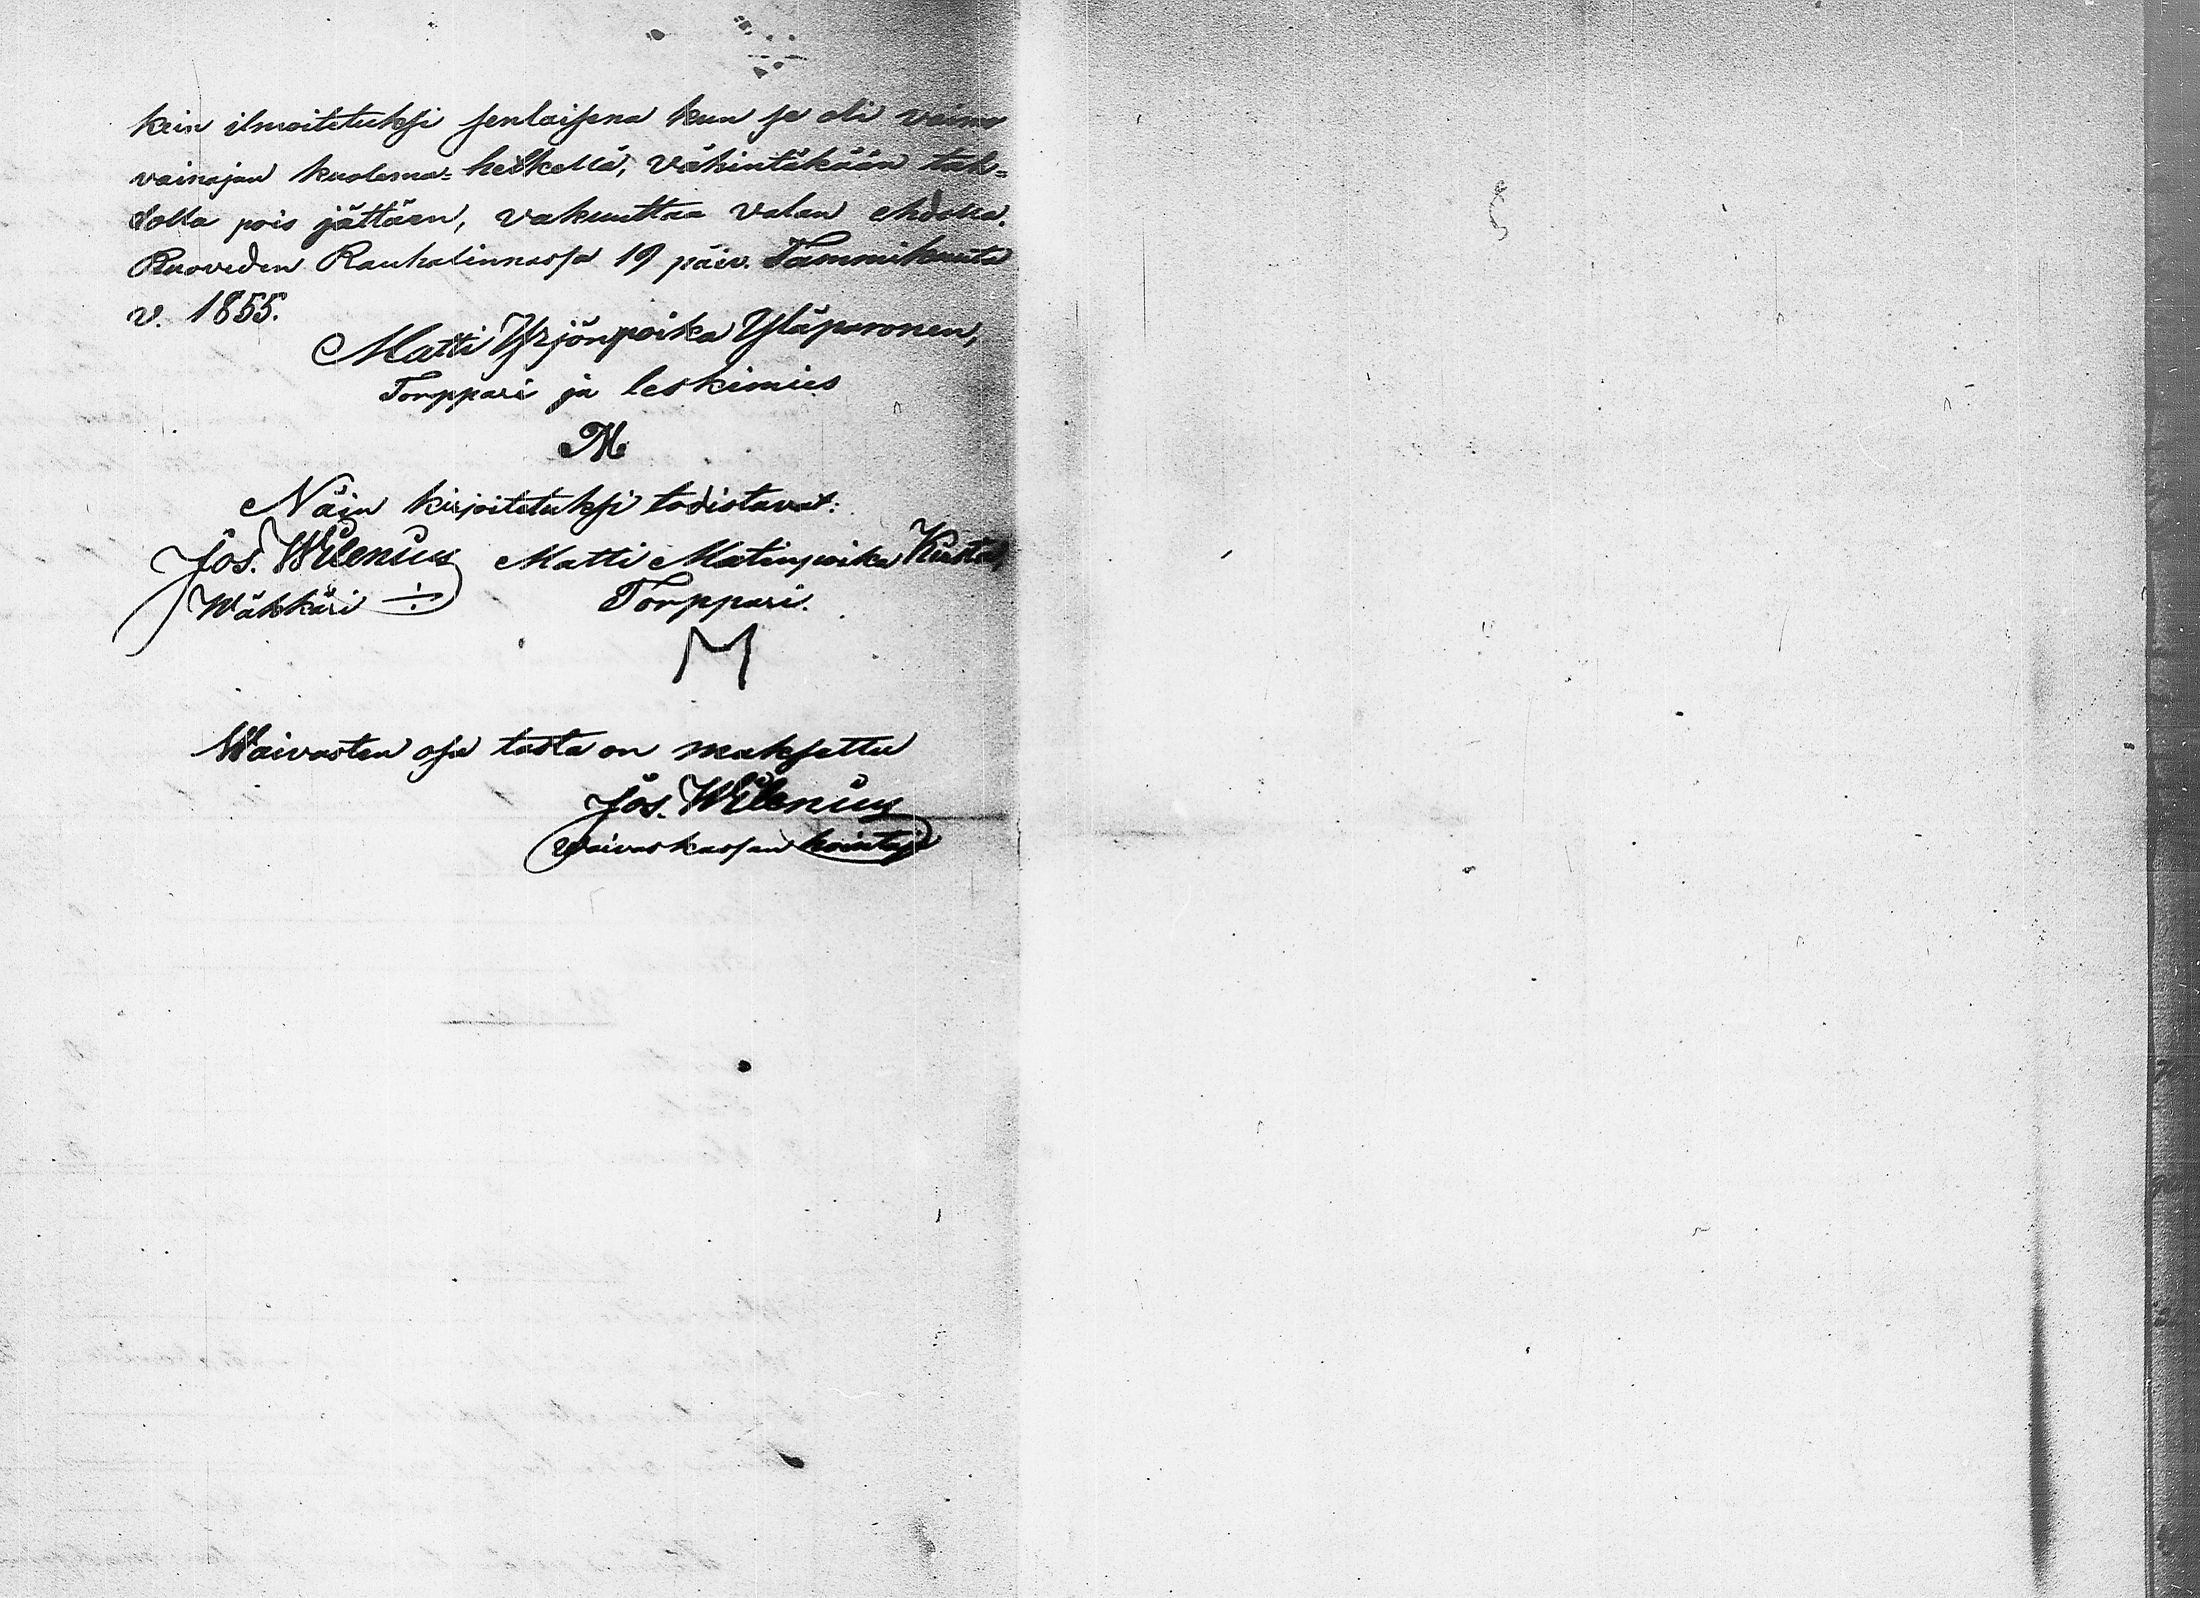 kein ilmoitetuksi senlaisena kun se oli vaimo
vainajan kuolema=hetkellä, vähintäkään tah=
dolla pois jättäen, vakuuttaa valan ehdolla.
Ruoveden Rauhalinnassa 19 päiv. Tammikuuta
v. 1855.
Matti Yrjönpoika Yläparonen,
Torppari ja leskimies
M
Näin kirjoitetuksi todistavat:
Jos. Wilenius Matti Matinpoika
Wäkkäri Torppari.
M
Waivasten osa tästä on maksettu
Jos. Wilenius
waivaskassan